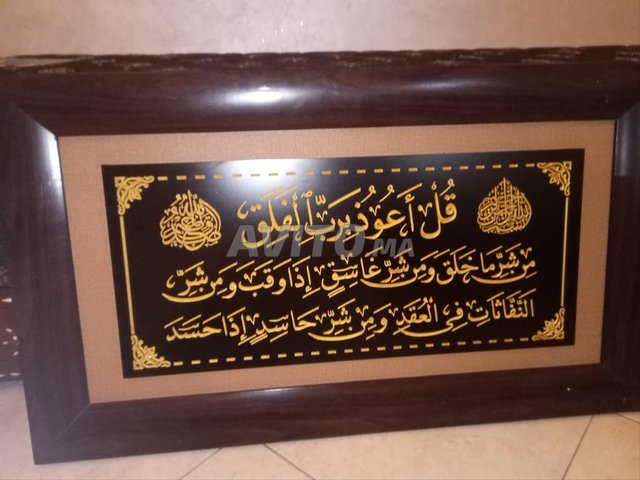 قُلْ أَعُوذُ بِرَبِّ ٱلْفَلَقِ
مِن شَرِّ مَا خَلَقَ وَمِن شَرِّ غَاسِقٍ إِذَا وَقَبَ وَمِن شَرِّ
النَّفَّاثَاتِ فِي الْعُقَدِ وَمِن شَرِّ حَاسِدٍ إِذَا حَسَدَ
AVITO.MA